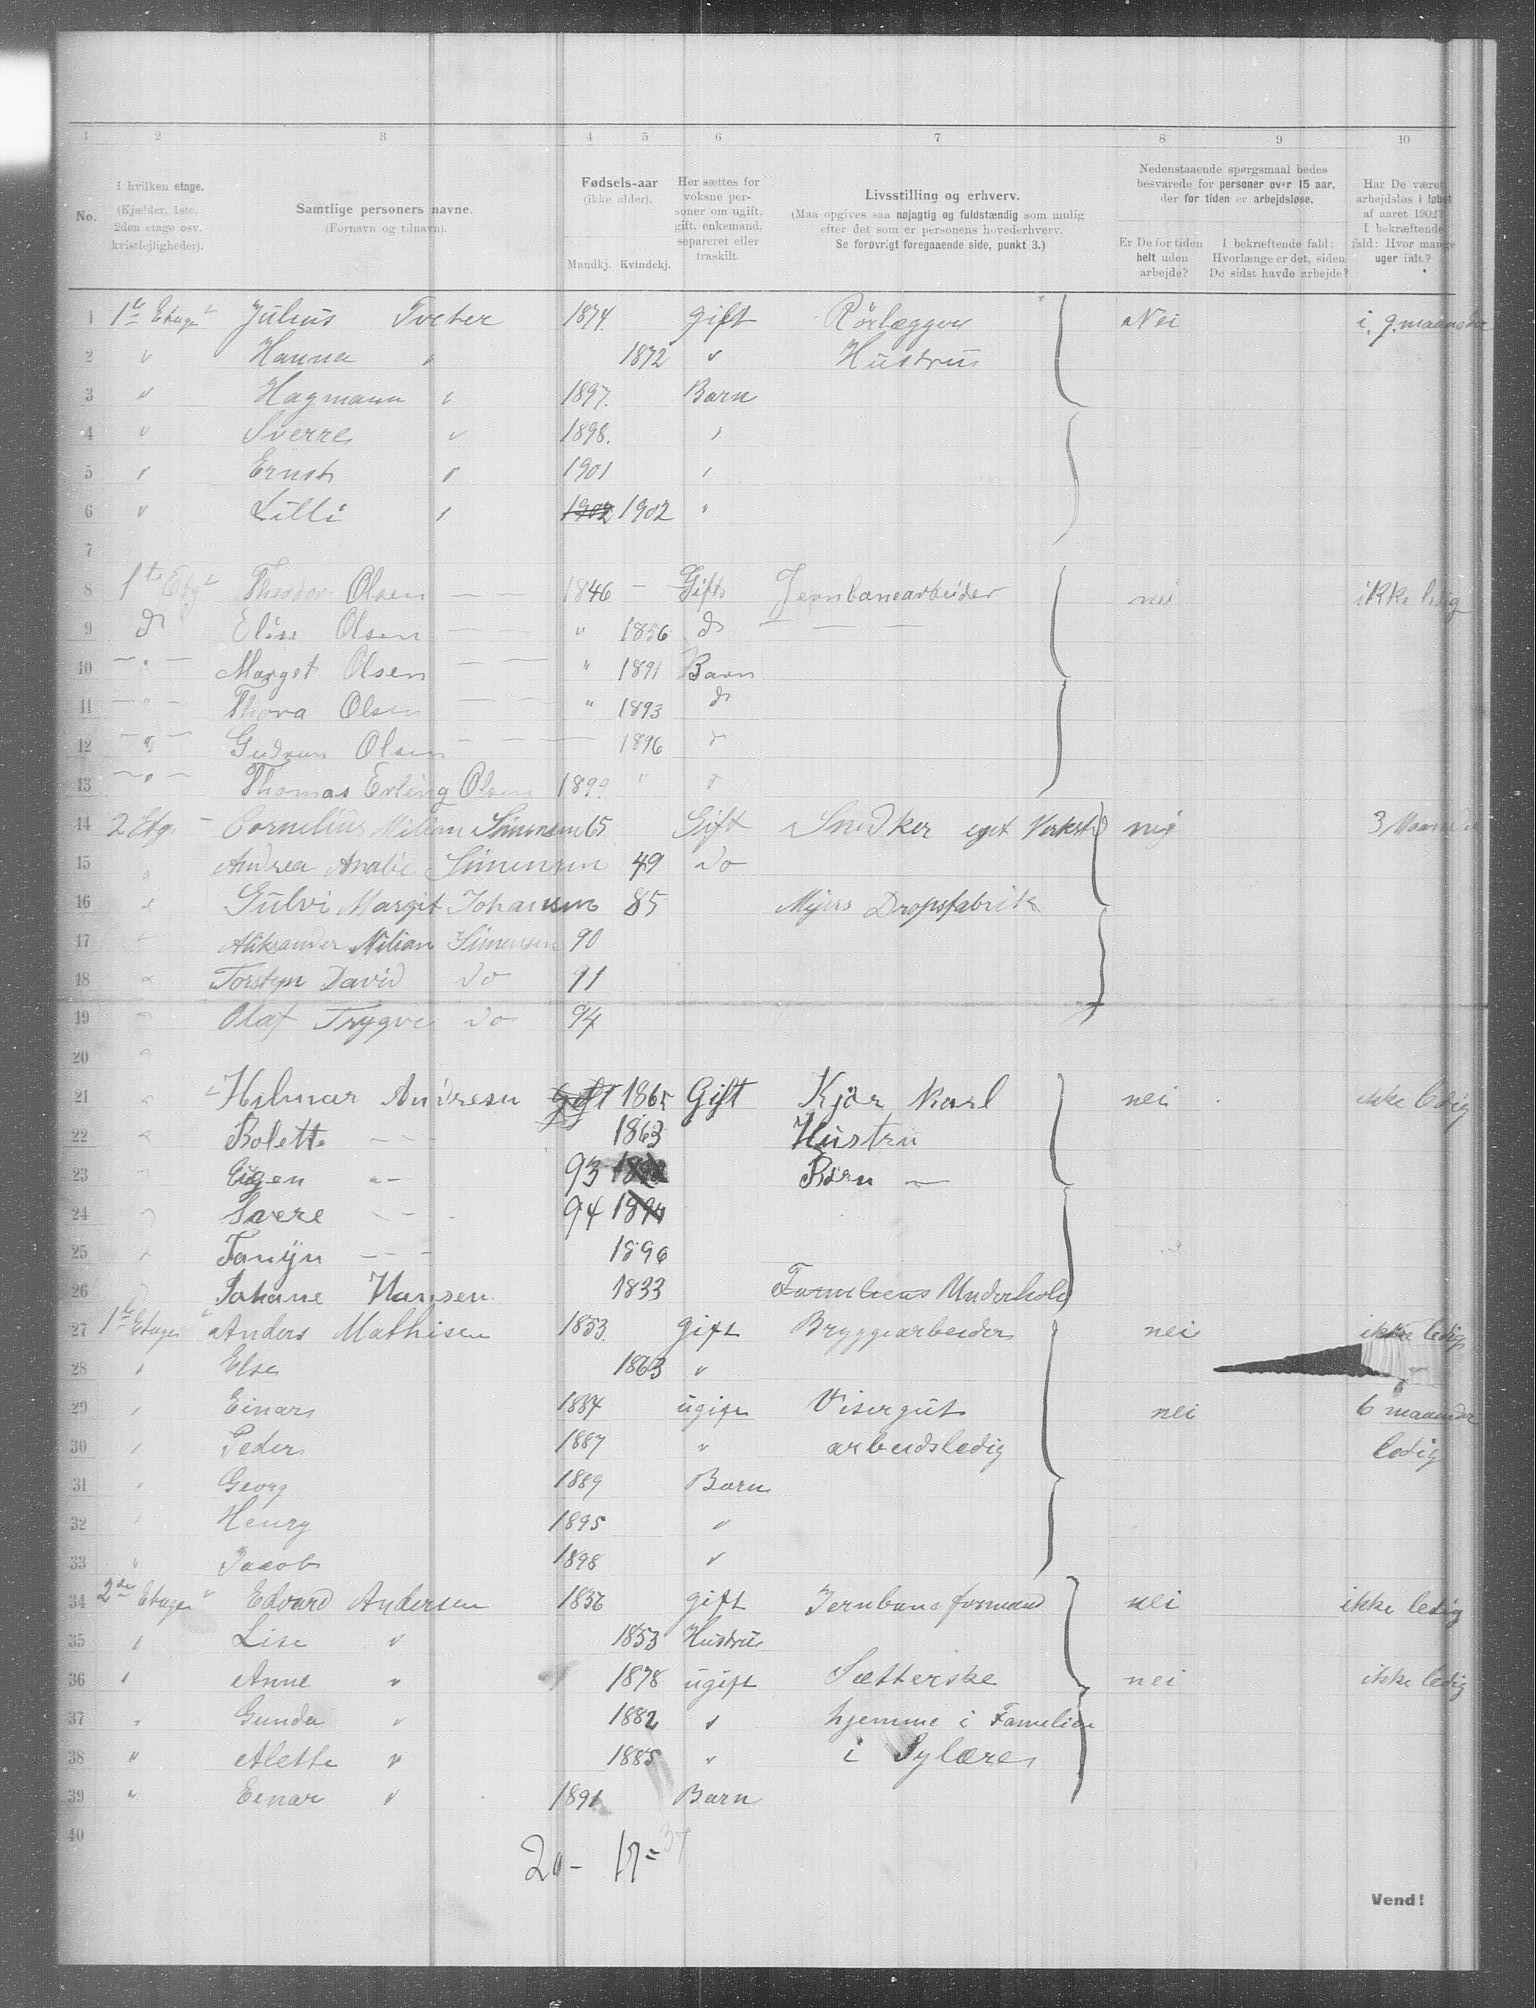 1 2 3 4 5 6 7 8 9 10
No.
I hvilken etage. (Kjælder, 1ste, 2den etage osv. kvistlejligheder).
Samtlige personers navne. (Fornavn og tilnavn).
Fødsels-aar (ikke alder). Mandkj. Kvindekj.
Her sættes for voksne personer om ugift, gift, enkemand, separeret eller fraskilt.
Livsstilling og erhverv. (Maa opgives saa nøjagtig og fuldstændig som mulig efter det som er personens hovederhverv. Se forøvrigt foregaaende side, punkt 3.)
Nedenstaaende spørgsmaal bedes besvarede for personer over 15 aar, der for tiden er arbejdsløse.
Er De for tiden helt uden arbejde?
I bekræftende fald: Hvorlænge er det, siden De sidst havde arbejde?
Har De været arbejdsløs i løbet af aaret 1902? I bekræftende fald: Hvor mange uger ialt?
1 1ste Etage Julius Tveter 1874. gift Rörlægger Nei i 9 maaneder
2 " Hanna " 1872 " Hustru
3 " Hagmann " 1897. Barn
4 " Sverre " 1898. "
5 " Ernst " 1901 "
6 " Lilli " 1902 1902 "
7
8 1te Etg Theodor Olsen 1846 — Gift Jernbanearbeider nei ikke ledig
9 do Elise Olsen " 1856 do
10 — " — Marget Olsen " 1891 Barn
11 — " — Thora Olsen " 1893 do
12 — " — Gudrun Olsen — 1896 "
13 — " — Thomas Erling Olsen 1899 " "
14 2 Etg. Cornelius Milian Simensen 65 Gift Snedker eget Verksted nei 3 Maaneder
15 " Andrea Amalie Simensen 49 do
16 " Gulvi Margit Johansen 85 Dropsfabrik
17 " Aliksander Milian Simensen 90
18 " Torstein David do 91
19 " Olaf Trygve do 94
20 "
21 " Hilmar Andresen gift 1865 Gift Kjör Karl nei ikke ledig
22 " Bolette — 1863 Hustru
23 " Eugen " 93 Børn —
24 " Svere — 94 1894
25 " Fanÿn — 1896
26 " Johane Hansen 1833 Fameliens Underhold
27 1ste Etage Anders Mathisen 1853. gift Bryggearbeider nei ikke ledig
28 " Else 1863 "
29 " Einar 1884 ugift Visergut nei 6 maaneder
30 " Peder 1887 " arbeidsledig ledig
31 " Georg 1889 Barn
32 " Henry 1895 "
33 " Jacob 1898 "
34 2den Etage Edvard Andersen 1856 gift Jernbane formand nei ikke ledig
35 " Lise " 1853 Hustru
36 " Anne " 1878 ugift Sætterske nei ikke ledig
37 " Gunda " 1882 " hjemme i Famelien
38 " Alette " 1885 " i Sylære
39 " Einar " 1891 Barn
40
20 — 17 = 37
Vend!